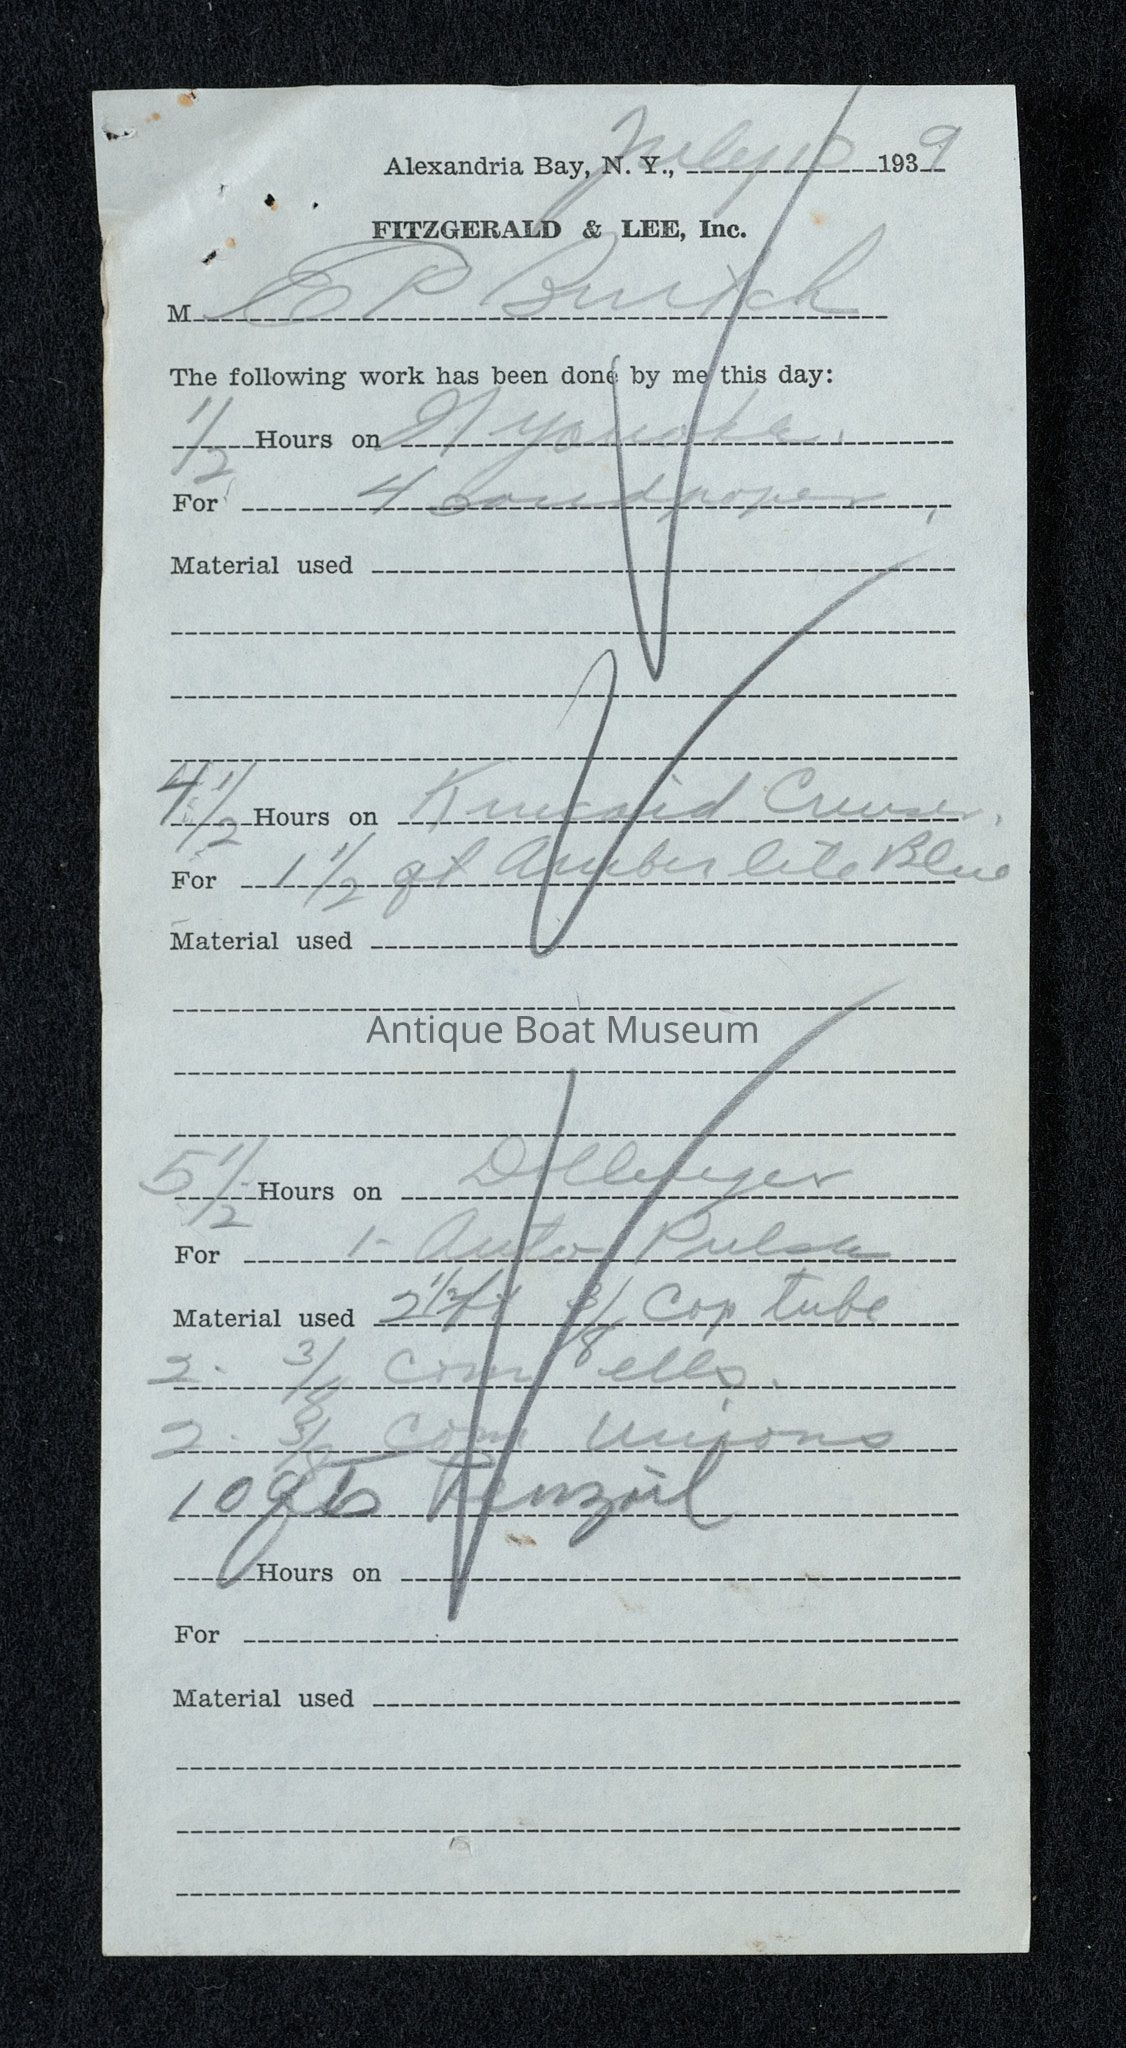 Alexandria Bay, N. Y., July 10 1939
FITZGERALD & LEE, Inc.
M E P Burtch
The following work has been done by me this day:
1/2 Hours on
For 4 Sandpaper,
Material used
4 1/2 Hours on Kincaid Cruiser.
For 1 1/2 qt Amberlite Blue
Material used
Antique Boat Museum
5 1/2 Hours on Dillinger
For 1- Auto Pulse
Material used 2 1/2 ft 3/8 Cop tube
2 - 3/8 com ells.
2 - 3/8 com unions
10 qts Penzoil
Hours on
For
Material used